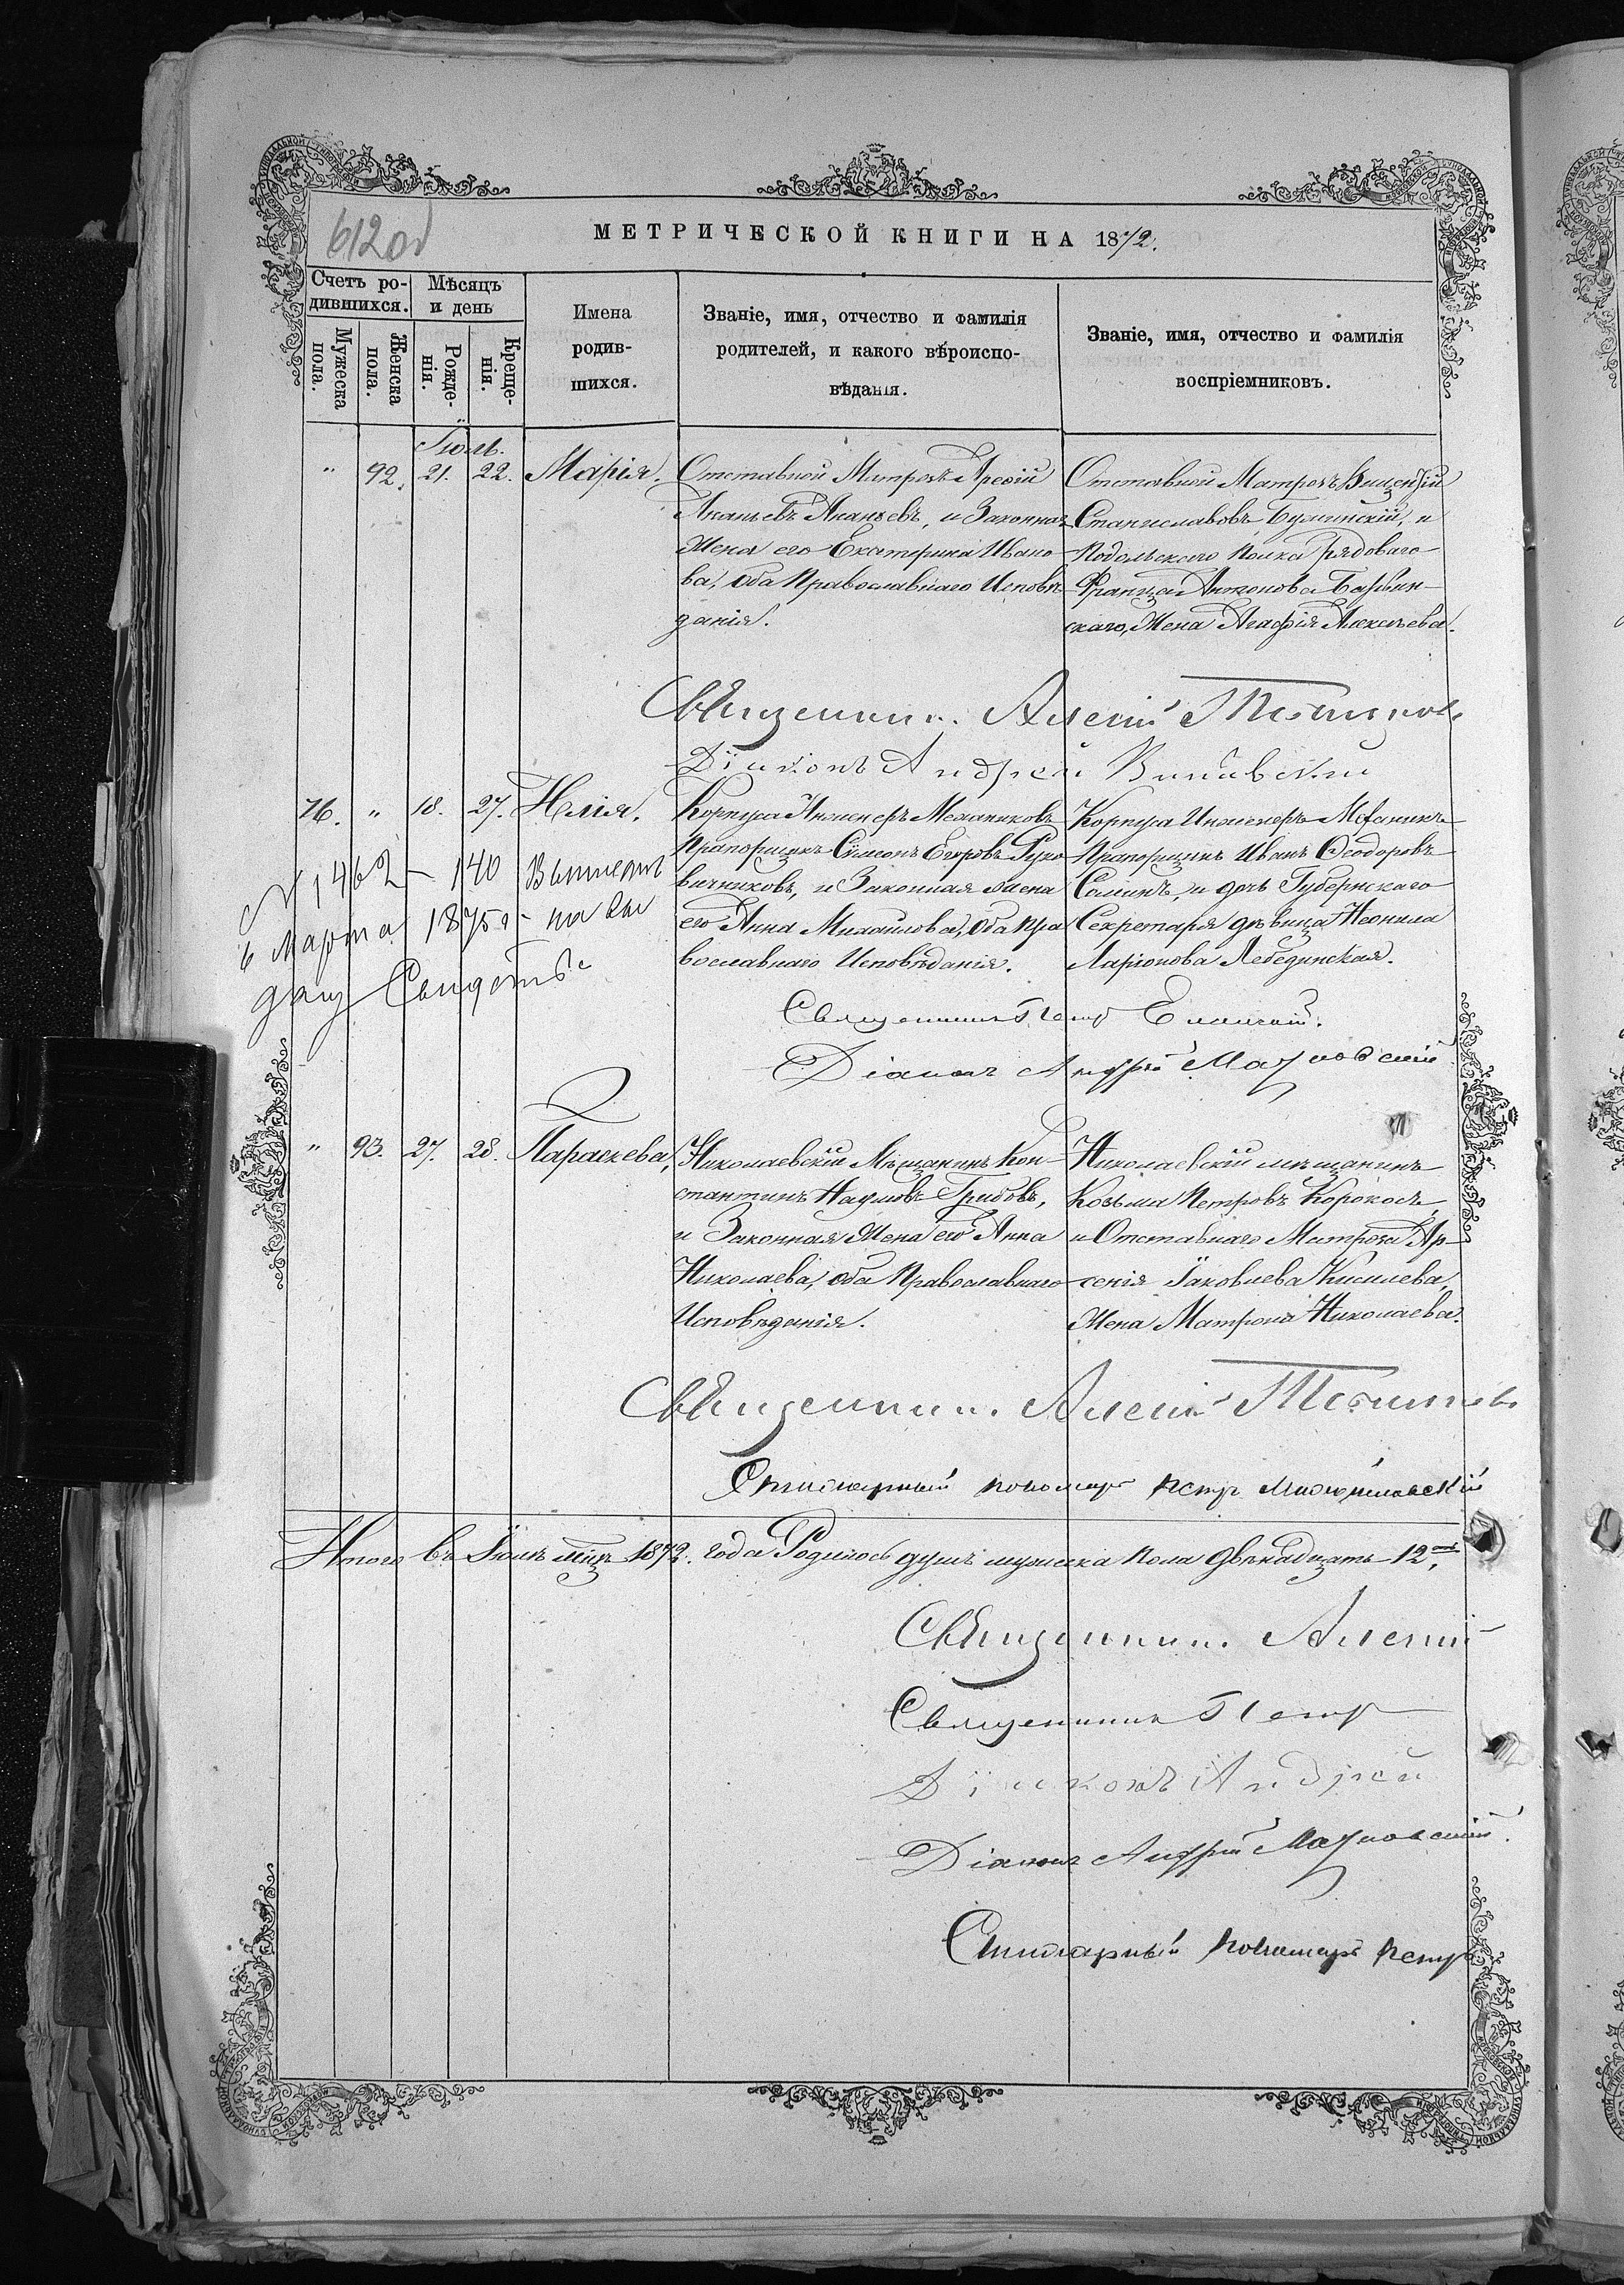 612 об
МЕТРИЧЕСКОЙ КНИГИ НА 1872.
Счетъ ро-
дившихся.
Мѣсяцъ
и день
Мужеска
пола.
Женска
пола.
Рожде-
нія.
Креще-
нія.
Имена
родив-
шихся.
Званіе, имя, отчество и фамилія
родителей, и какого вѣроиспо-
вѣданія.
Званіе, имя, отчество и фамилія
воспріемниковъ.
Іюль.
" 92. 21. 22. Марія.
Отставной Матрозъ
Ананьевъ Ананьевъ, и Законная
Жена его Екатерина Ивано-
ва, оба Православнаго Исповѣ-
данія.
Отставной Матрозъ Викентій
Станиславовъ и
Подольскаго Полка Рядоваго
Франца Антонова
скаго, Жена Агафія Алексѣева.
Священник. Алексій
Діаконъ Андрей
76. " 18. 27. Илія.
Корпуса Инженеръ Механиковъ
Прапорщикъ Сѵмеонъ Егоровъ Руко-
вичниковъ, и Законная жена
его Анна Михайлова, оба Пра
вославнаго Исповѣданія.
Корпуса Инженеръ Механикъ
Прапорщикъ Иванъ Ѳеодоровъ
и дочь Губернскаго
Секретаря дѣвица Неонила
Ларіонова Лебединская.
№ 1462 – 140
6 Марта 1875
Священникъ Петр
Діаконъ Андрей
" 93. 27. 28. Параскева,
Николаевскій Мѣщанинъ Кон-
стантинъ Наумовъ Грибовъ,
и Законная Жена его Анна
Николаева, оба Православнаго
Исповѣданія.
Николаевскій мѣщанинъ
Козьма Петровъ
и Отставнаго Матроза Ар-
сенія Іаковлева Киселева,
Жена Матрона Николаева.
Священник. Алексій
пономарь Петръ
Итого въ Іюлѣ мѣцѣ 1872. года Родилось душъ мужеска пола двѣнадцать 12,
Священник. Алексій
Священникъ Петр
Діаконъ Андрей
Діаконъ Андрей
пономарь Петръ